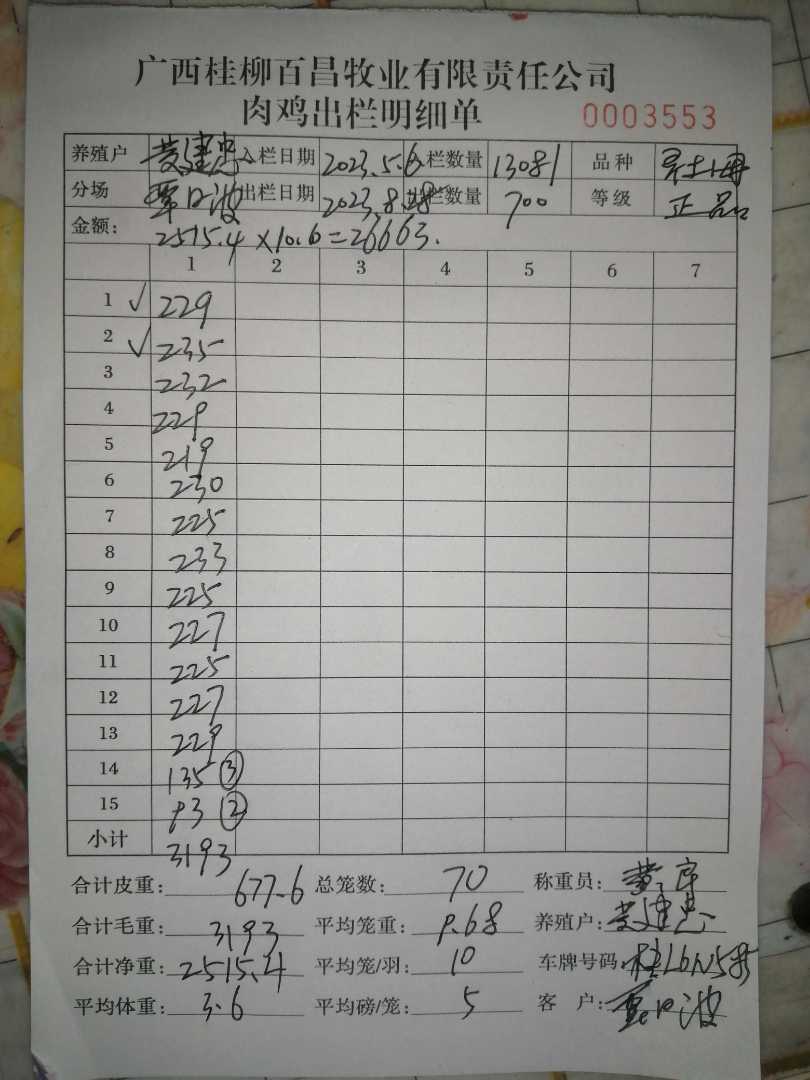 广西桂柳百昌牧业有限责任公司
肉鸡出栏明细单 0003553
养殖户 黄建忠 入栏日期 2023.5.6 入栏数量 13081 品种
分场 覃日波 出栏日期 2023.8.28 出栏数量 700 等级 正品
金额: 2515.4×10.6=26663.
1 2 3 4 5 6 7
1 ✓ 229
2 ✓ 235
3 232
4 229
5 219
6 230
7 225
8 233
9 225
10 227
11 225
12 227
13 229
14 135 ③
15 93 ②
小计 3193
合计皮重: 677.6 总笼数: 70 称重员:
合计毛重: 3193 平均笼重: 9.68 养殖户: 黄建忠
合计净重: 2515.4 平均笼/羽: 10 车牌号码:
平均体重: 3.6 平均磅/笼: 5 客 户: 覃日波